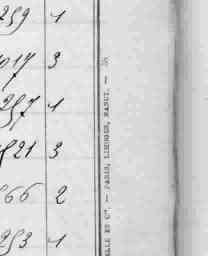 259 1
917 3
257 1
821 3
566 2
253 1
ELLE ET Cie. — PARIS, LIMOGES, NANCY. —